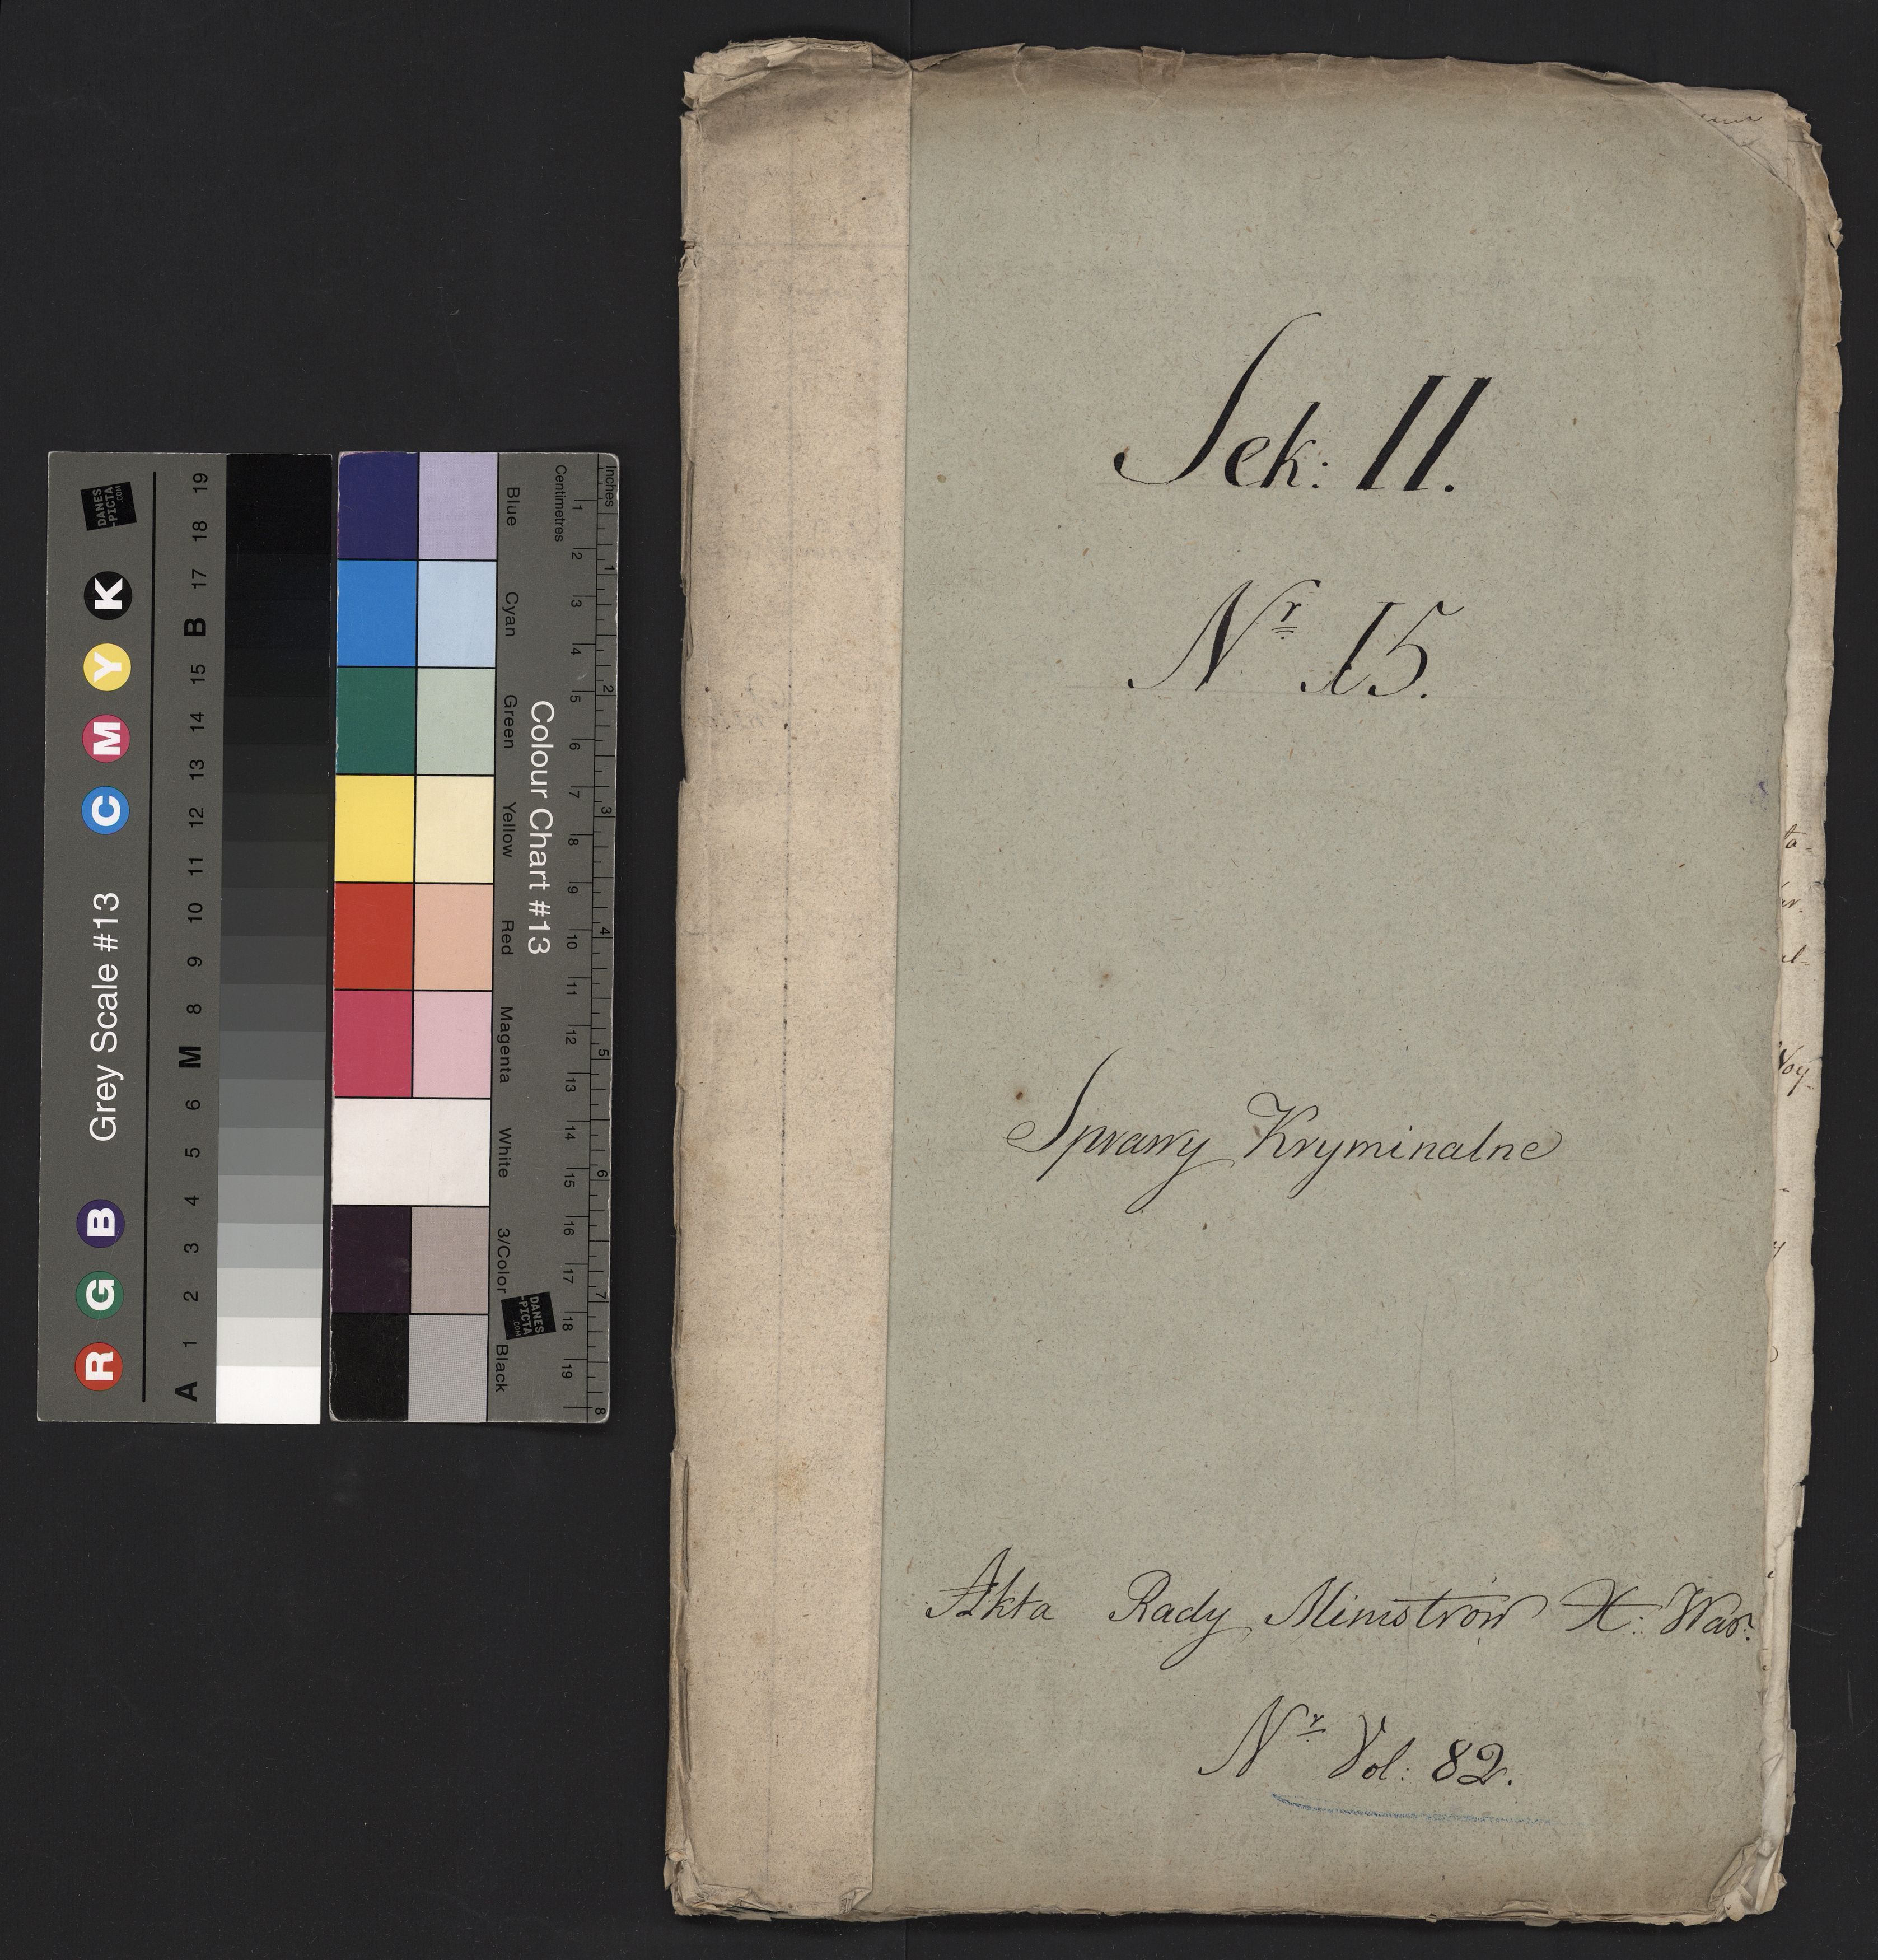 Sek: II.
Nr 15.
Sprawy Kryminalne
Akta Rady Ministrów X: War:
Nr Vol: 82.
Grey Scale #13
R G B C M Y K
A 1 2 3 4 5 6 M 8 9 10 11 12 13 14 15 B 17 18 19
DANES
-PICTA
.COM
Colour Chart #13
Blue Cyan Green Yellow Red Magenta White 3/Color Black
Centimetres
1 2 3 4 5 6 7 8 9 10 11 12 13 14 15 16 17 18 19
Inches
1 2 3 4 5 6 7 8
DANES
-PICTA
.COM